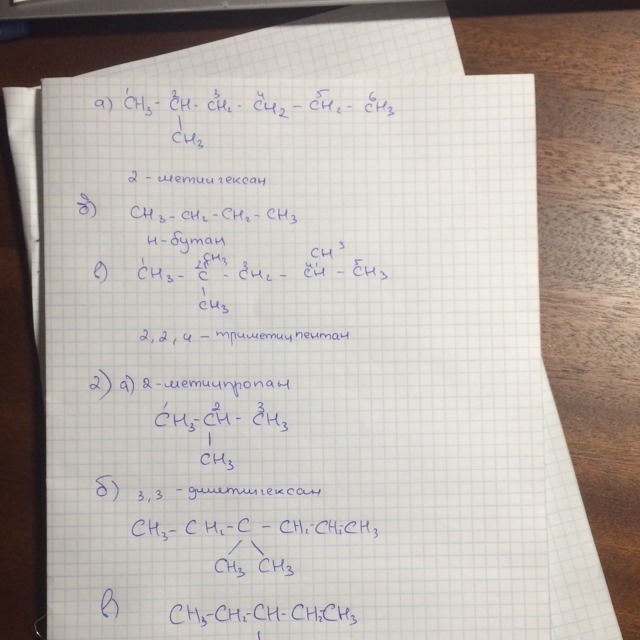 а) CH3 - CH - CH2 - CH2 - CH2 - CH3
1 2 3 4 5 6
CH3
2 - метилгексан
б) CH3 - CH2 - CH2 - CH3
н-бутан
CH3 CH3
в) CH3 - C - CH2 - CH - CH3
1 2 3 4 5
CH3
2, 2, 4 - триметилпентан
2) а) 2-метилпропан
CH3 - CH - CH3
1 2 3
CH3
б) 3,3 - диметилгексан
CH3 - CH2 - C - CH2 - CH2 CH3
CH3 CH3
в) CH3 - CH2 - CH - CH2 CH3